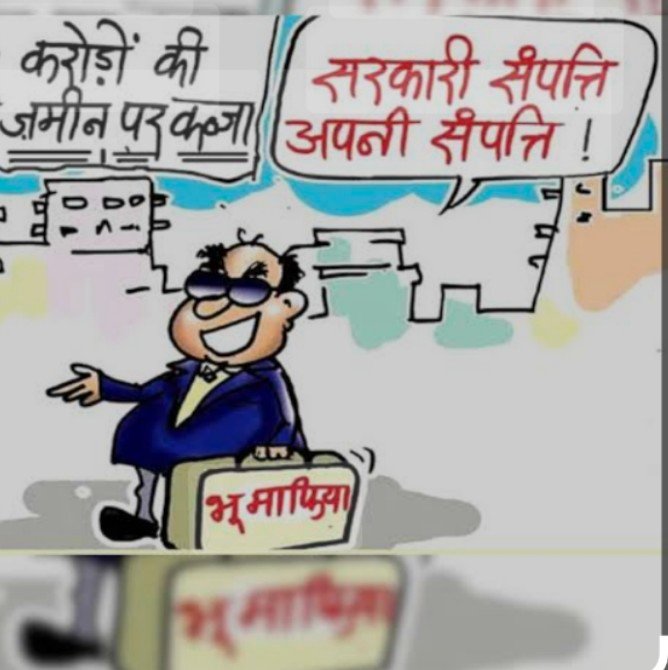 करोड़ों की
ज़मीन पर कब्जा
सरकारी संपत्ति
अपनी संपत्ति !
भू माफिया
भू माफिया